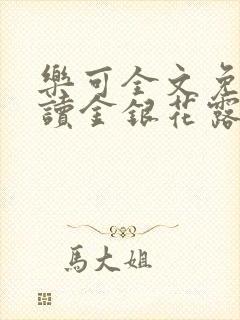 樂可全文免
讀金銀花露
馬大姐